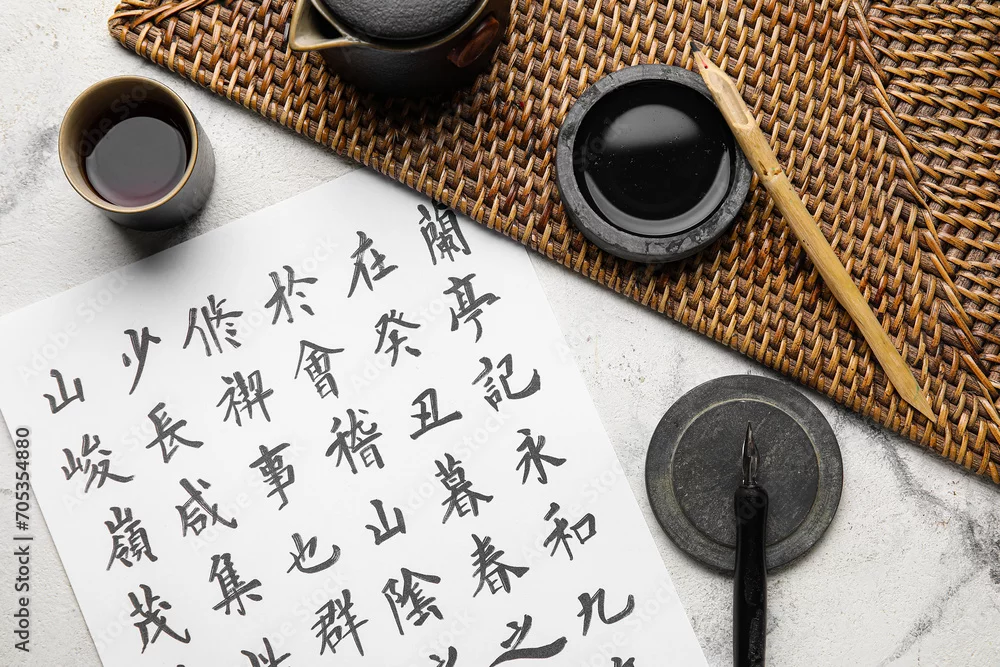 蘭亭記永和九
在癸丑暮春之
於會稽山陰
修禊事也群
少長咸集
山峻嶺茂
Adobe Stock | #705354880